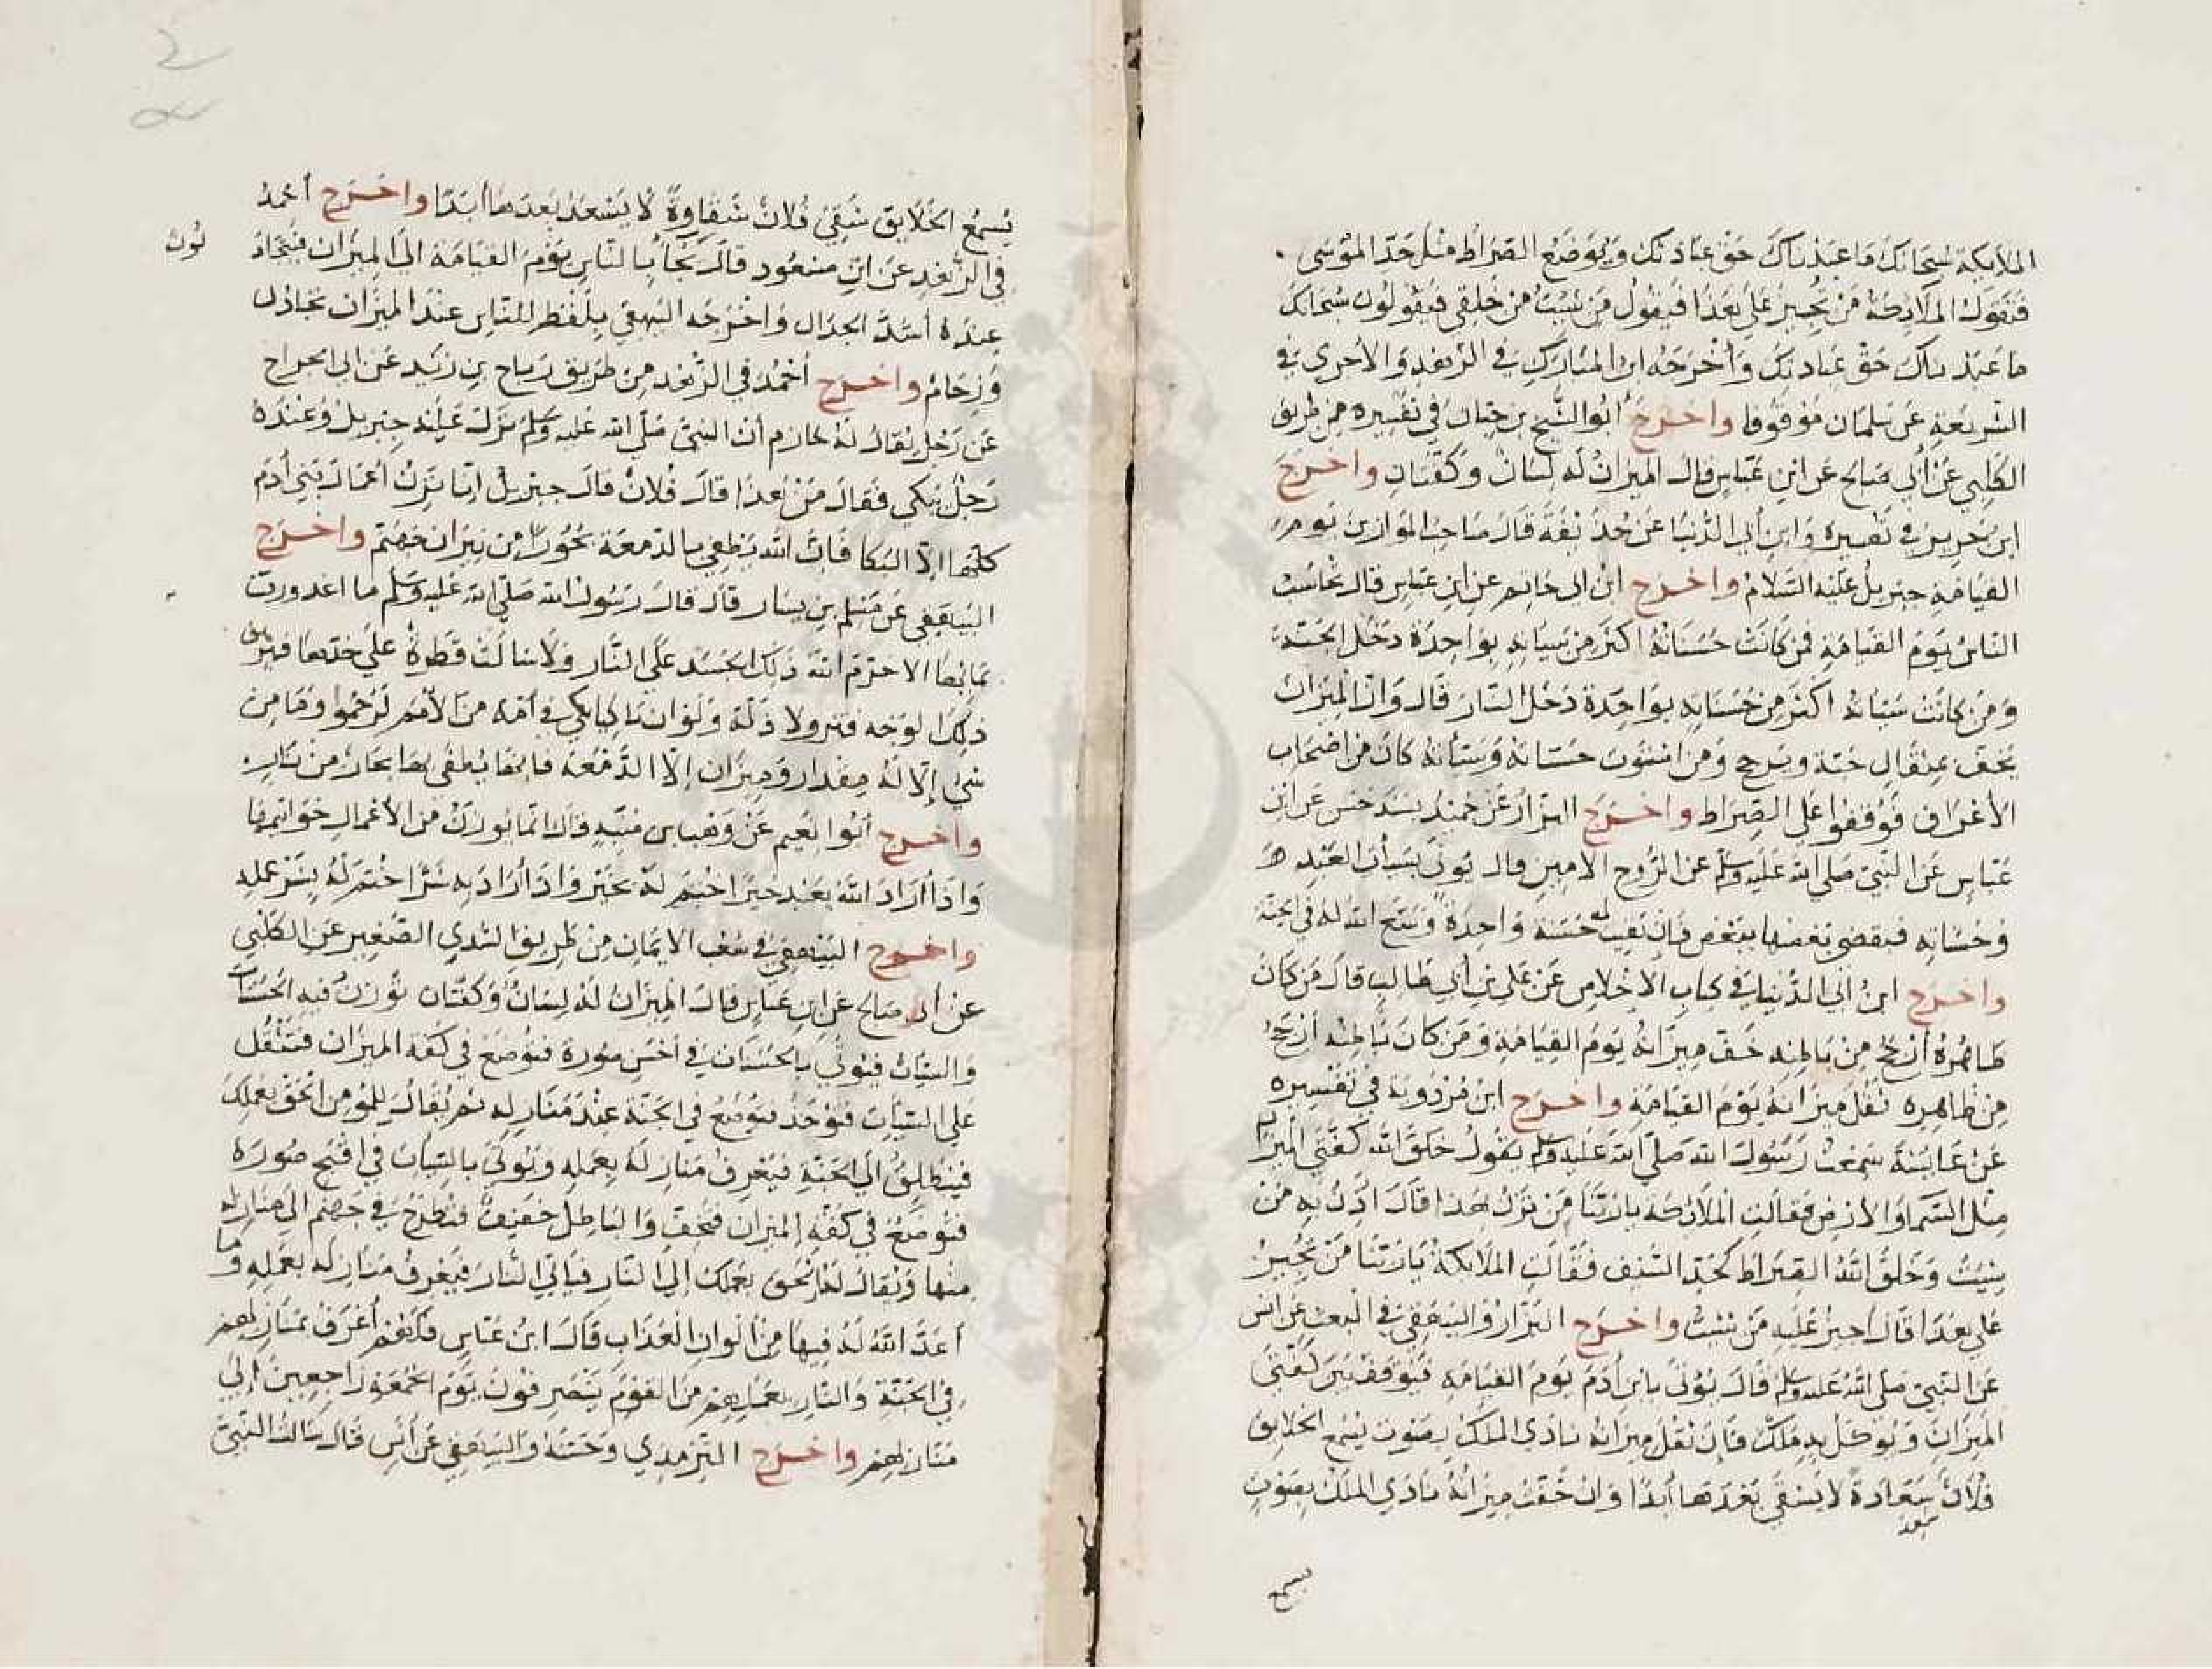 الملايكة سبحانك ما عبدناك حق عبادتك ويوضع الصراط مثل حد الموسى
فتقول الملايكة من يجيز على هذا فيقول من شيت من خلقي فيقولون سبحانك
ما عبدناك حق عبادتك وأخرجه ابن المبارك في الزهد والاجري في
الشريعة عن سلمان موقوفا واخرج أبو الشيخ بن حيان في تفسيره من طريق
الكلبي عن أبي صالح عن ابن عباس قال الميزان له لسان وكفتان واخرج
ابن جرير في تفسيره وابن أبي الدنيا عن حذيفة قال صاحب الموازين يوم
القيامة جبريل عليه السلام واخرج ابن ابي حاتم عن ابن عباس قال يحاسب
الناس يوم القيامة فمن كانت حسناته اكثر من سياته بواحدة دخل الجنة
ومن كانت سياته اكثر من حسناته بواحدة دخل النار قال وان الميزان
يخف بمثقال حبة ويرجح ومن استوت حسناته وسيأته كان من اصحاب
الأعراف فوقفوا على الصراط واخرج البزار بسند حسن عن ابن
عباس عن النبي صلى الله عليه وسلم عن الروح الامين قال يوتى بسيأت العبد
وحسناته فيقضى بعضها ببعض فان بقيت له حسنة واحدة وسع الله له في الجنة
واخرج ابن ابي الدنيا في كتاب الاخلاص عن علي بن أبي طالب قال من كان
ظاهره أرجح من باطنه خف ميزانه يوم القيامة ومن كان باطنه أرجح
من ظاهره ثقل ميزانه يوم القيامة واخرج ابن مردوية في تفسيره
عن عايشة سمعت رسول الله صلى الله عليه وسلم يقول خلق الله كفتي الميزان
مثل السما والارض فقالت الملائكة ياربنا من تزن بهذا قال ازن به من
شيت وخلق الله الصراط كحد السيف فقالت الملايكة ياربنا من تجيز
على هذا قال اجيز عليه من شيت واخرج البزار والبيهقي في البعث عن انس
عن النبي صلى الله عليه وسلم قال يوتى بابن أدم يوم القيامة فيوقف بين كفتي
الميزان ويوكل به ملك فان ثقل ميزانه نادى الملك بصوت يسمع الخلايق
سعد فلان سعادة لا يشقى بعدها أبدا وان خفت ميزانه نادي الملك بصوت
يسمع
يسمع الخلايق شقي فلان شقاوة لا يسعد بعدها أبدا واخرج أحمد
في الزهد عن ابن مسعود قال يجا بالناس يوم القيامة الى الميزان فيتجاد
لون
عنده أشد الجدال واخرجه البيهقي بلفظ للناس عند الميزان تجادل
وزحام واخرج أحمد في الزهد من طريق رباح بن زيد عن ابي الجراح
عن رجل يقال له حازم أن النبي صلى الله عليه وسلم نزل عليه جبريل وعنده
رجل يبكي فقال من هذا قال فلان قال جبريل انا نزن أعمال بني أدم
كلها الا البكا فان الله يطفي بالدمعة بحورا من نيران جهنم واخرج
البيهقي عن مسلم بن يسار قال قال رسول الله صلى الله عليه وسلم ما اغرورقت
عين بمائها الا حرم الله ذلك الجسد على النار ولا سالت قطرة على خدها فيرهق
ذلك الوجه قتر ولا ذلة ولو ان باكيا بكى في أمة من الأمم لرحموا وما من
شي إلا له مقدار وميزان إلا الدمعة فانها يطفى بها بحار من نار
واخرج أبو نعيم عن وهب بن منبه قال انما يوزن من الأعمال خواتيمها
واذا أراد الله بعبد خيرا ختم له بخير واذا أراد به شرا ختم له بشر عمله
واخرج البيهقي في شعب الايمان من طريق السدي الصغير عن الكلبي
عن أبي صالح عن ابن عباس قال الميزان له لسان وكفتان يوزن فيه الحسنات
والسيات فيوتى بالحسنات في أحسن صورة فتوضع في كفة الميزان فتثقل
على السيات فتوخذ فتوضع في الجنة عند منازله ثم يقال للمومن الحق بعملك
فينطلق الى الجنة فيعرف منازله بعمله ويوتى بالسيات في اقبح صورة
فتوضع في كفة الميزان فتخف والباطل خفيف فتطرح في جهنم الى منازله
منها ويقال له الحق بعملك إلى النار فياتي النار فيعرف منازله بعمله وما
أعد الله له فيها من ألوان العذاب قال ابن عباس فلهم أعرف بمنازلهم
في الجنة والنار بعملهم من القوم ينصرفون يوم الجمعة راجعين إلى
منازلهم واخرج الترمدي وحسنه والبيهقي عن أنس قال سالت النبي